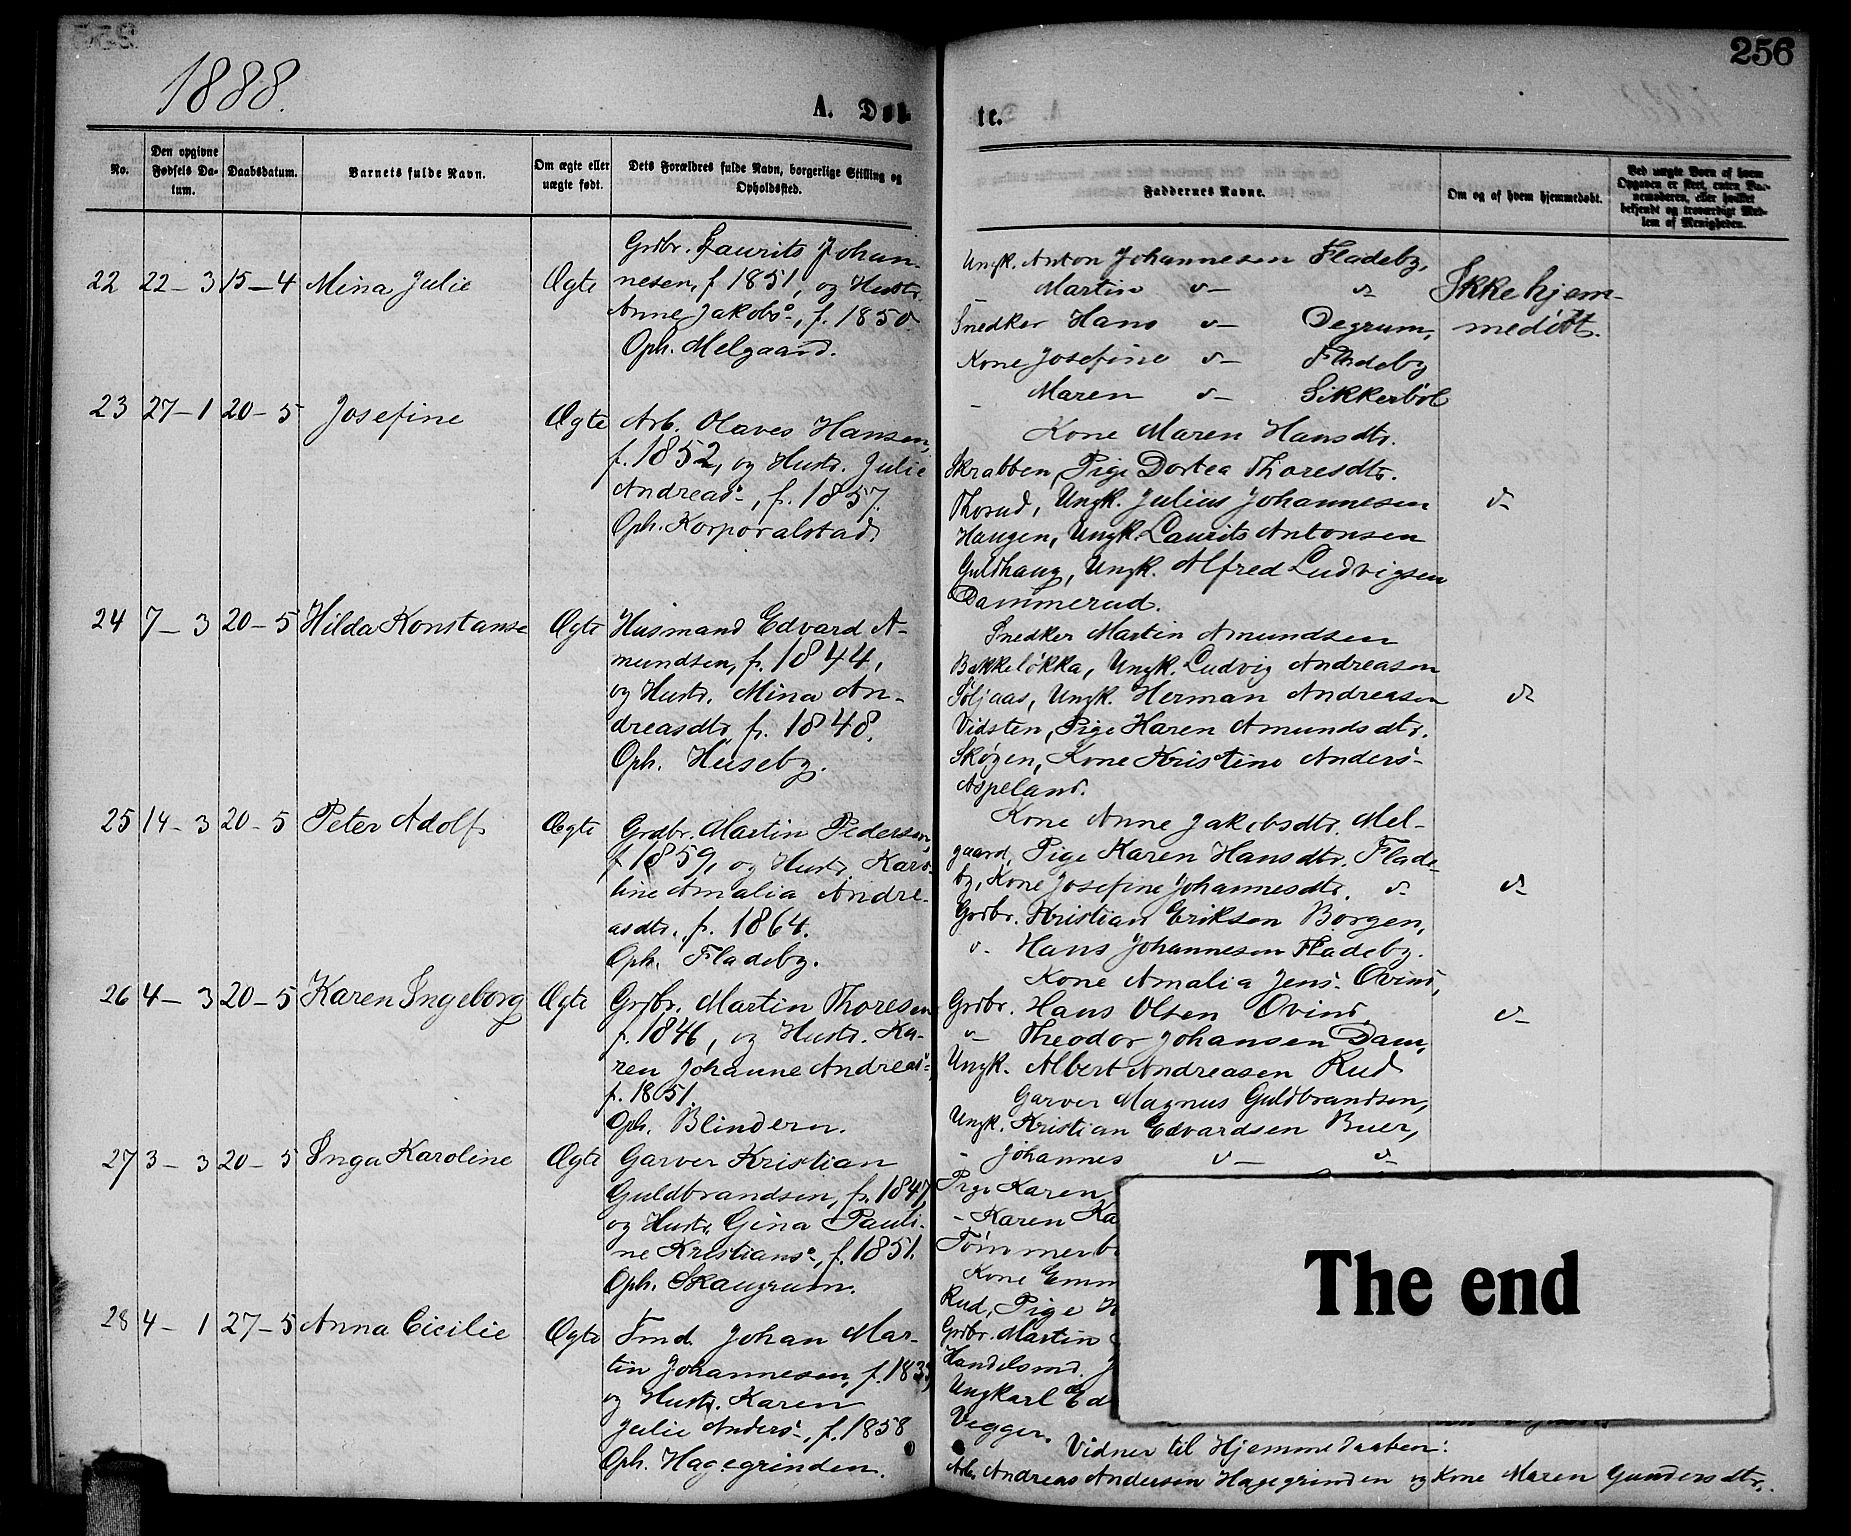 256
1888.
A. Døb-
te.
No.
Den opgivne Fødsels Datum.
Daabsdatum.
Barnets fulde Navn.
Om ægte eller uægte født.
Dets Forældres fulde Navn, borgerlige Stilling og Opholdssted.
Faddernes Navne.
Om og af hvem hjemmedøbt.
Ved uægte Børn af hvem
Opgaven er sket, enten Bar-
nemoderen, eller hvilket
bekjendt og troværdigt Med-
lem af Menigheden.
22 22-3 15-4 Mina Julie Ægte
Grdbr. Laurits Johan-
nesen, f. 1851, og Hustr.
Anne Jakobs-, f. 1850
Oph. Melgaard.
Ungk. Anton Johannesen Fladeby,
Martin d- d-
Snedker Hans d- Degrum,
Kone Josefine d- Fladeby
- Maren d- Sikkerböl
Ikke hjem-
medöbt.
23 27-1 20-5 Josefine Ægte
Arb. Olaves Hansen,
f. 1852, og Hustr. Julie
Andreas-, f. 1857.
Oph. Korporalstad
Kone Maren Hansdtr.
Skrabben, Pige Dortea Thoresdtr.
Thorud, Ungk. Julius Johannesen
Haugen, Ungk. Laurits Antonsen
Guldhaug, Ungk. Alfred Ludvigsen
Dammerud.
d-
24 7-3 20-5 Hilda Konstanse Ægte
Husmand Edvard A-
mundsen, f. 1844,
og Hustr. Mina An-
dreasdtr., f. 1848.
Oph. Huseby.
Snedker Martin Amundsen
Bakkelökka, Ungk. Ludvig Andreasen
Töljaas, Ungk. Herman Andreasen
Vidsten, Pige Karen Amundsdtr.
Skögen, Kone Kristine Anders-
Aspeland.
d-
25 14-3 20-5 Peter Adolf Ægte
Grdbr. Martin Pedersen,
f. 1859, og Hustr. Karo-
line Amalia Andre-
asdtr., f. 1864.
Oph. Fladeby.
Kone Anne Jakobsdtr. Mel-
gaard, Pige Karen Hansdtr. Flade-
by, Kone Josefine Johannesdtr. d-
Grdbr. Kristian Eriksen Borgen,
d- Hans Johannesen Fladeby.
d-
26 4-3 20-5 Karen Ingeborg Ægte
Grdbr. Martin Thoresen
f. 1846, og Hustr. Ka-
ren Johanne Andreas-,
f. 1851.
Oph. Blindern.
Kone Amalia Jens- Ovind,
Grdbr. Hans Olsen Ovind,
d- Theodor Johansen Dam,
Ungk. Albert Andreasen Rud
d-
27 3-3 20-5 Inga Karoline Ægte
Garver Kristian
Guldbrandsen, f. 1847,
og Hustr. Gina Pauli-
ne Kristians-, f. 1851.
Oph. Skaugrum.
Garver Magnus Guldbrandsen,
Ungk. Kristian Edvardsen Buer,
- Johannes d- d-
Pige Karen
- Karen Ka
Tömmerb
28 4-1 27-5 Anna Cicilie Ægte
Tmd. Johan Mar-
tin Johannesen, f. 183
og Hustr. Karen
Julie Anders-, f. 1858
Oph. Hagegrinden.
Kone Emm
Rud, Pige
Grdbr. Martin
Handelsmd. J
Ungkarl Ed
Vegger.
Vidner til Hjemmedaaben:
Arb. Andreas Andersen Hagegrinden og Kone Maren Gundersdtr.
The end